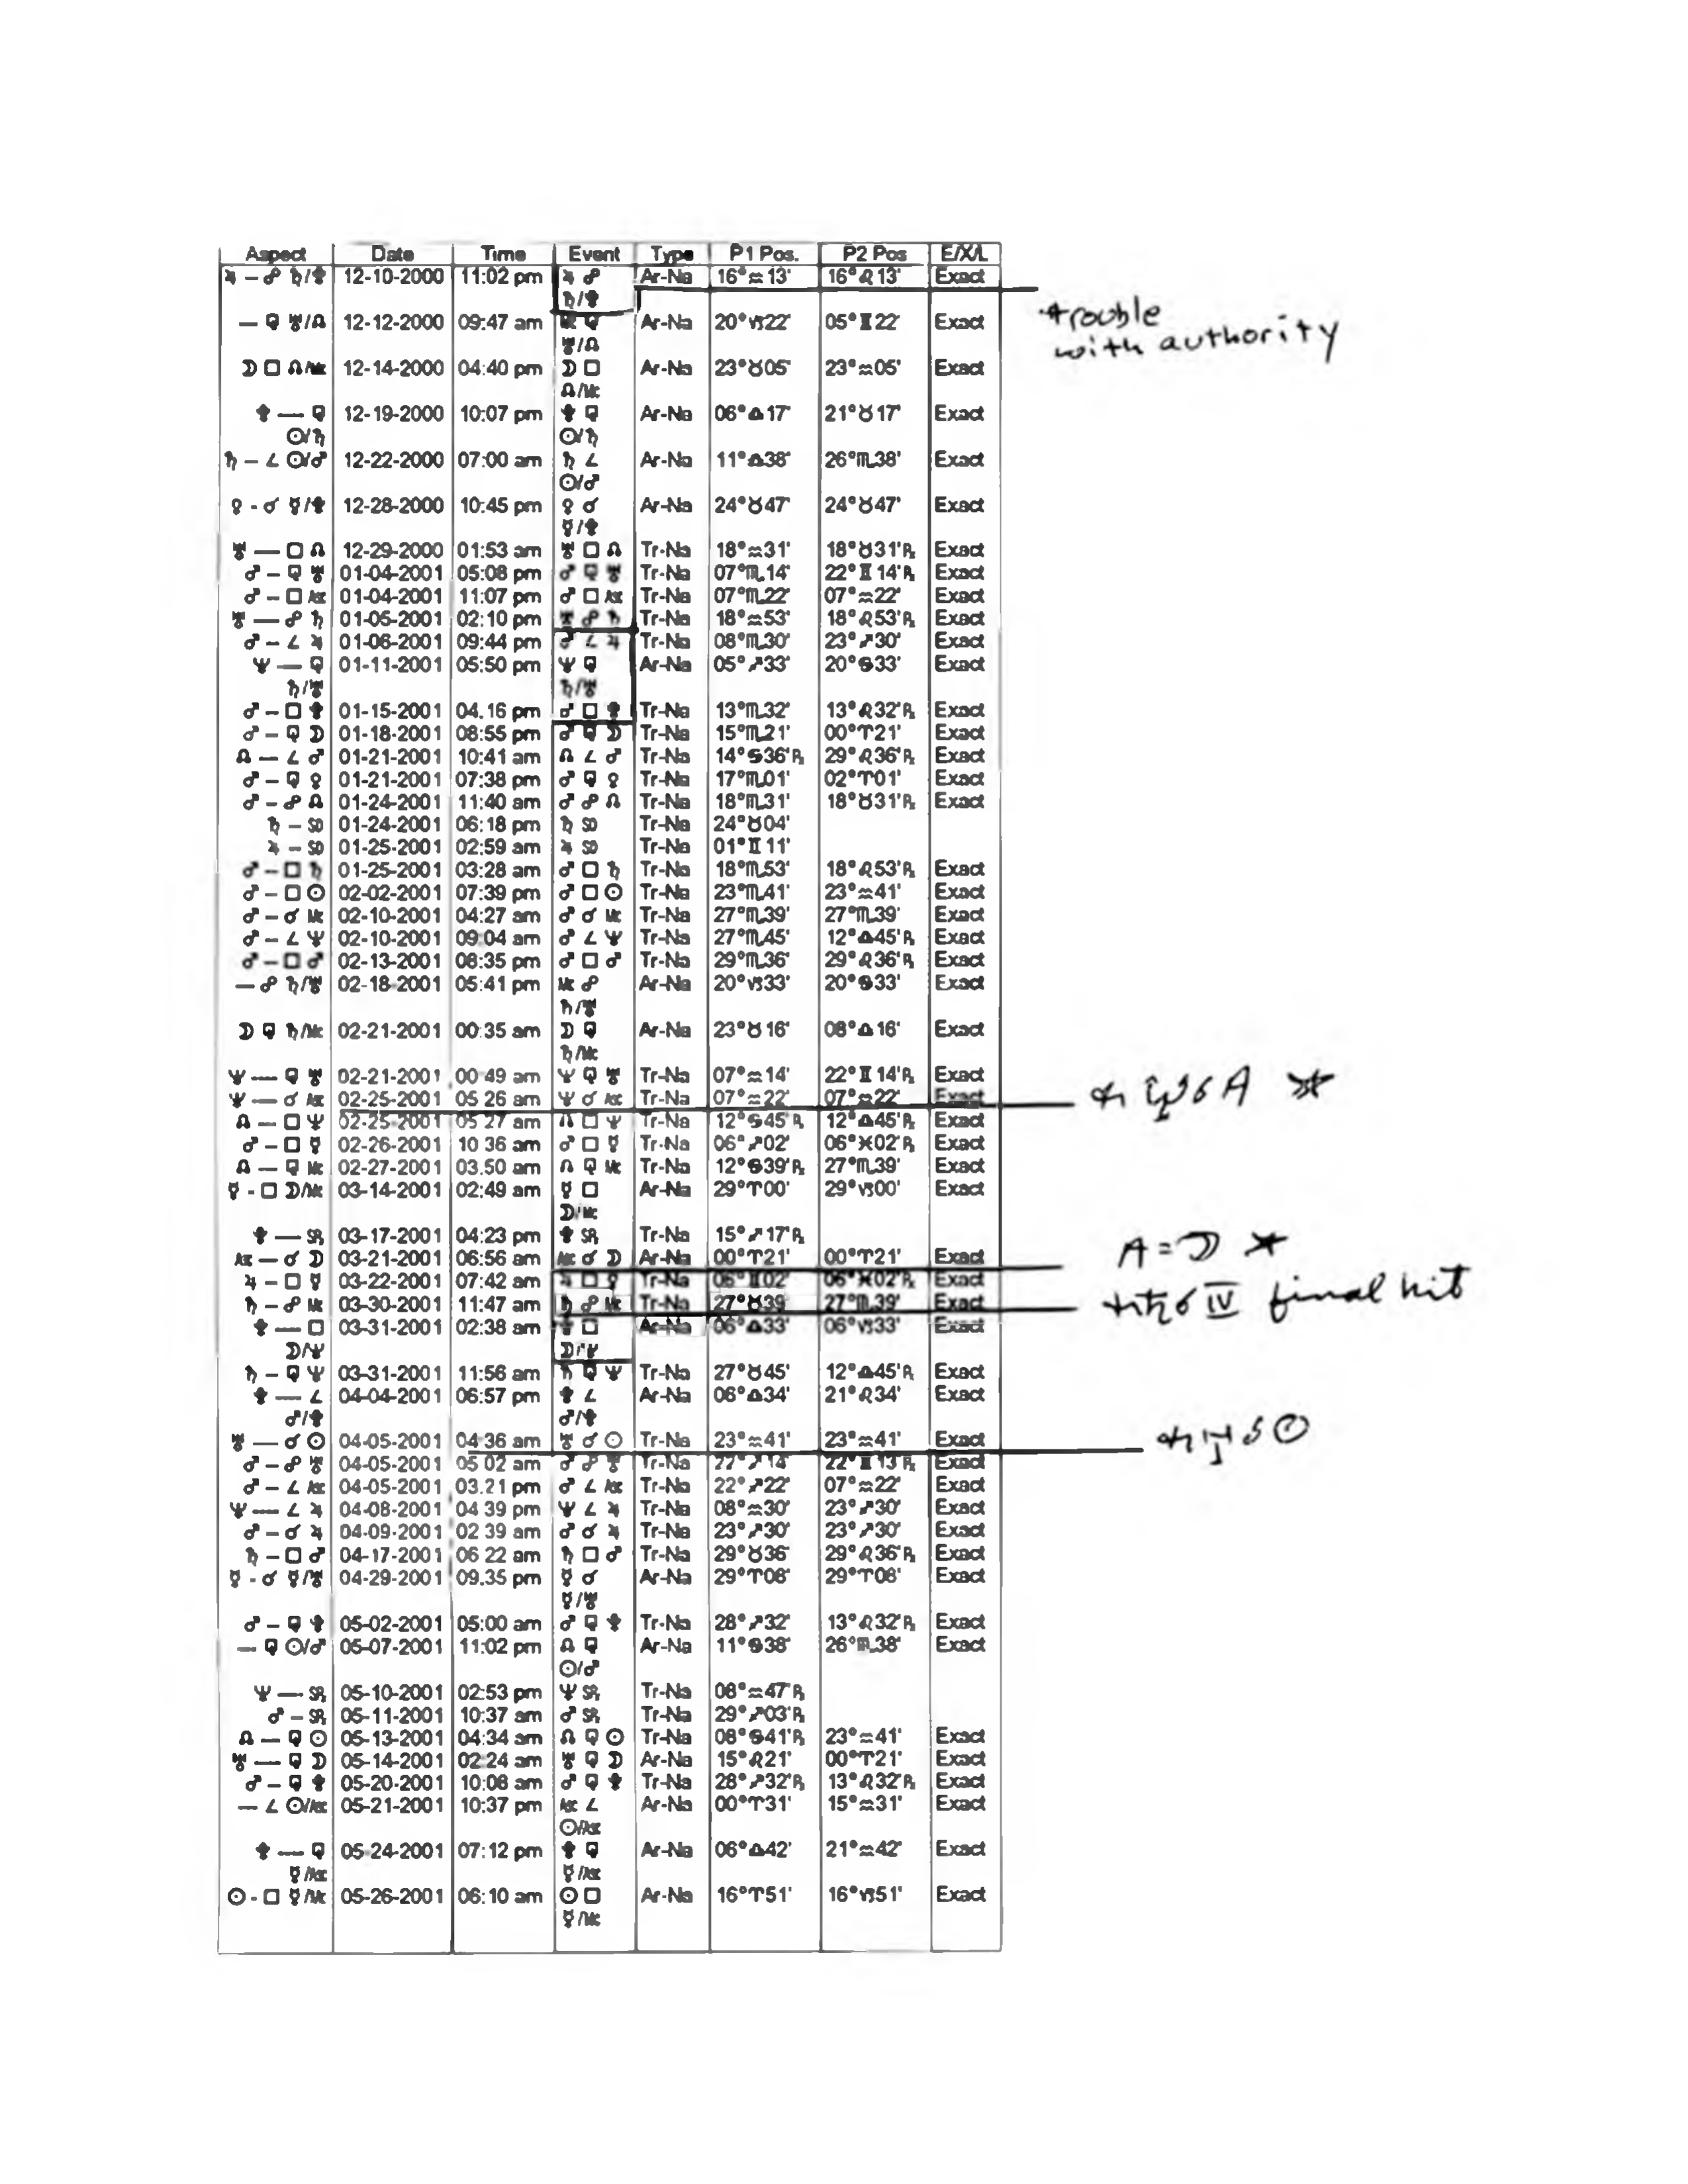 Aspect Date Time Event Type P1 Pos. P2 Pos E/X/L
♃ — ☍ ♄/♇ 12-10-2000 11:02 pm ♃ ☍ Ar-Na 16°♒13' 16°♌13' Exact
♄/♇
trouble
with authority
— ⚼ ♅/☊ 12-12-2000 09:47 am Mc ⚼ Ar-Na 20°♑22' 05°♊22' Exact
♅/☊
☽ □ ☊/Mc 12-14-2000 04:40 pm ☽ □ Ar-Na 23°♉05' 23°♒05' Exact
☊/Mc
♇ — ⚼ 12-19-2000 10:07 pm ♇ ⚼ Ar-Na 06°♎17' 21°♉17' Exact
☉/♄ ☉/♄
♄ — ∠ ☉/♂ 12-22-2000 07:00 am ♄ ∠ Ar-Na 11°♎38' 26°♏38' Exact
☉/♂
♀ - ☌ ☿/♇ 12-28-2000 10:45 pm ♀ ☌ Ar-Na 24°♉47' 24°♉47' Exact
☿/♇
♅ — □ ☊ 12-29-2000 01:53 am ♅ □ ☊ Tr-Na 18°♒31' 18°♉31'℞ Exact
♂ — ⚼ ♅ 01-04-2001 05:08 pm ♂ ⚼ ♅ Tr-Na 07°♏14' 22°♊14'℞ Exact
♂ — □ Asc 01-04-2001 11:07 pm ♂ □ Asc Tr-Na 07°♏22' 07°♒22' Exact
♅ — ☍ ♄ 01-05-2001 02:10 pm ♅ ☍ ♄ Tr-Na 18°♒53' 18°♌53'℞ Exact
♂ — ∠ ♃ 01-06-2001 09:44 pm ♂ ∠ ♃ Tr-Na 08°♏30' 23°♐30' Exact
♆ — ⚼ 01-11-2001 05:50 pm ♆ ⚼ Ar-Na 05°♐33' 20°♋33' Exact
♄/♅ ♄/♅
♂ — □ ♇ 01-15-2001 04.16 pm ♂ □ ♇ Tr-Na 13°♏32' 13°♌32'℞ Exact
♂ — ⚼ ☽ 01-18-2001 08:55 pm ♂ ⚼ ☽ Tr-Na 15°♏21' 00°♈21' Exact
☊ — ∠ ♂ 01-21-2001 10:41 am ☊ ∠ ♂ Tr-Na 14°♋36'℞ 29°♌36'℞ Exact
♂ — ⚼ ♀ 01-21-2001 07:38 pm ♂ ⚼ ♀ Tr-Na 17°♏01' 02°♈01' Exact
♂ — ☍ ☊ 01-24-2001 11:40 am ♂ ☍ ☊ Tr-Na 18°♏31' 18°♉31'℞ Exact
♄ — SD 01-24-2001 06:18 pm ♄ SD Tr-Na 24°♉04'
♃ — SD 01-25-2001 02:59 am ♃ SD Tr-Na 01°♊11'
♂ — □ ♄ 01-25-2001 03:28 am ♂ □ ♄ Tr-Na 18°♏53' 18°♌53'℞ Exact
♂ — □ ☉ 02-02-2001 07:39 pm ♂ □ ☉ Tr-Na 23°♏41' 23°♒41' Exact
♂ — ☌ Mc 02-10-2001 04:27 am ♂ ☌ Mc Tr-Na 27°♏39' 27°♏39' Exact
♂ — ∠ ♆ 02-10-2001 09:04 am ♂ ∠ ♆ Tr-Na 27°♏45' 12°♎45'℞ Exact
♂ — □ ♂ 02-13-2001 08:35 pm ♂ □ ♂ Tr-Na 29°♏36' 29°♌36'℞ Exact
— ☍ ♄/♅ 02-18-2001 05:41 pm Mc ☍ Ar-Na 20°♑33' 20°♋33' Exact
♄/♅
☽ ⚼ ♄/Mc 02-21-2001 00:35 am ☽ ⚼ Ar-Na 23°♉16' 08°♎16' Exact
♄/Mc
♆ — ⚼ ♅ 02-21-2001 00:49 am ♆ ⚼ ♅ Tr-Na 07°♒14' 22°♊14'℞ Exact
♆ — ☌ Asc 02-25-2001 05 26 am ♆ ☌ Asc Tr-Na 07°♒22' 07°♒22' Exact tr ♆ ☌ A ★
☊ — □ ♆ 02-25-2001 05 27 am ☊ □ ♆ Tr-Na 12°♋45'℞ 12°♎45'℞ Exact
♂ — □ ☿ 02-26-2001 10 36 am ♂ □ ☿ Tr-Na 06°♐02' 06°♓02'℞ Exact
☊ — ⚼ Mc 02-27-2001 03.50 am ☊ ⚼ Mc Tr-Na 12°♋39'℞ 27°♏39' Exact
☿ - □ ☽/Mc 03-14-2001 02:49 am ☿ □ Ar-Na 29°♈00' 29°♑00' Exact
☽/Mc
♇ — SR 03-17-2001 04:23 pm ♇ SR Tr-Na 15°♐17'℞
Asc — ☌ ☽ 03-21-2001 06:56 am Asc ☌ ☽ Ar-Na 00°♈21' 00°♈21' Exact A = ☽ ★
♃ — □ ☿ 03-22-2001 07:42 am ♃ □ ☿ Tr-Na 06°♊02' 06°♓02'℞ Exact
♄ — ☍ Mc 03-30-2001 11:47 am ♄ ☍ Mc Tr-Na 27°♉39' 27°♏39' Exact tr ♄ ☌ IV final hit
♇ — □ 03-31-2001 02:38 am ♇ □ Ar-Na 06°♎33' 06°♑33' Exact
☽/♆ ☽/♆
♄ — ⚼ ♆ 03-31-2001 11:56 am ♄ ⚼ ♆ Tr-Na 27°♉45' 12°♎45'℞ Exact
♇ — ∠ 04-04-2001 06:57 pm ♇ ∠ Ar-Na 06°♎34' 21°♌34' Exact
♂/♇ ♂/♇
♅ — ☌ ☉ 04-05-2001 04:36 am ♅ ☌ ☉ Tr-Na 23°♒41' 23°♒41' Exact tr ♅ ☌ ☉
♂ — ☍ ♅ 04-05-2001 05 02 am ♂ ☍ ♅ Tr-Na 22°♐14' 22°♊13'℞ Exact
♂ — ∠ Asc 04-05-2001 03.21 pm ♂ ∠ Asc Tr-Na 22°♐22' 07°♒22' Exact
♆ — ∠ ♃ 04-08-2001 04 39 pm ♆ ∠ ♃ Tr-Na 08°♒30' 23°♐30' Exact
♂ — ☌ ♃ 04-09-2001 02 39 am ♂ ☌ ♃ Tr-Na 23°♐30' 23°♐30' Exact
♄ — □ ♂ 04-17-2001 06 22 am ♄ □ ♂ Tr-Na 29°♉36' 29°♌36'℞ Exact
☿ - ☌ ☿/♅ 04-29-2001 09.35 pm ☿ ☌ Ar-Na 29°♈08' 29°♈08' Exact
☿/♅
♂ — ⚼ ♇ 05-02-2001 05:00 am ♂ ⚼ ♇ Tr-Na 28°♐32' 13°♌32'℞ Exact
— ⚼ ☉/♂ 05-07-2001 11:02 pm ☊ ⚼ Ar-Na 11°♋38' 26°♏38' Exact
☉/♂
♆ — SR 05-10-2001 02:53 pm ♆ SR Tr-Na 08°♒47'℞
♂ — SR 05-11-2001 10:37 am ♂ SR Tr-Na 29°♐03'℞
☊ — ⚼ ☉ 05-13-2001 04:34 am ☊ ⚼ ☉ Tr-Na 08°♋41'℞ 23°♒41' Exact
♅ — ⚼ ☽ 05-14-2001 02:24 am ♅ ⚼ ☽ Ar-Na 15°♌21' 00°♈21' Exact
♂ — ⚼ ♇ 05-20-2001 10:08 am ♂ ⚼ ♇ Tr-Na 28°♐32'℞ 13°♌32'℞ Exact
— ∠ ☉/Asc 05-21-2001 10:37 pm Asc ∠ Ar-Na 00°♈31' 15°♒31' Exact
☉/Asc
♇ — ⚼ 05-24-2001 07:12 pm ♇ ⚼ Ar-Na 06°♎42' 21°♒42' Exact
☿/Asc ☿/Asc
☉ - □ ☿/Mc 05-26-2001 06:10 am ☉ □ Ar-Na 16°♈51' 16°♑51' Exact
☿/Mc